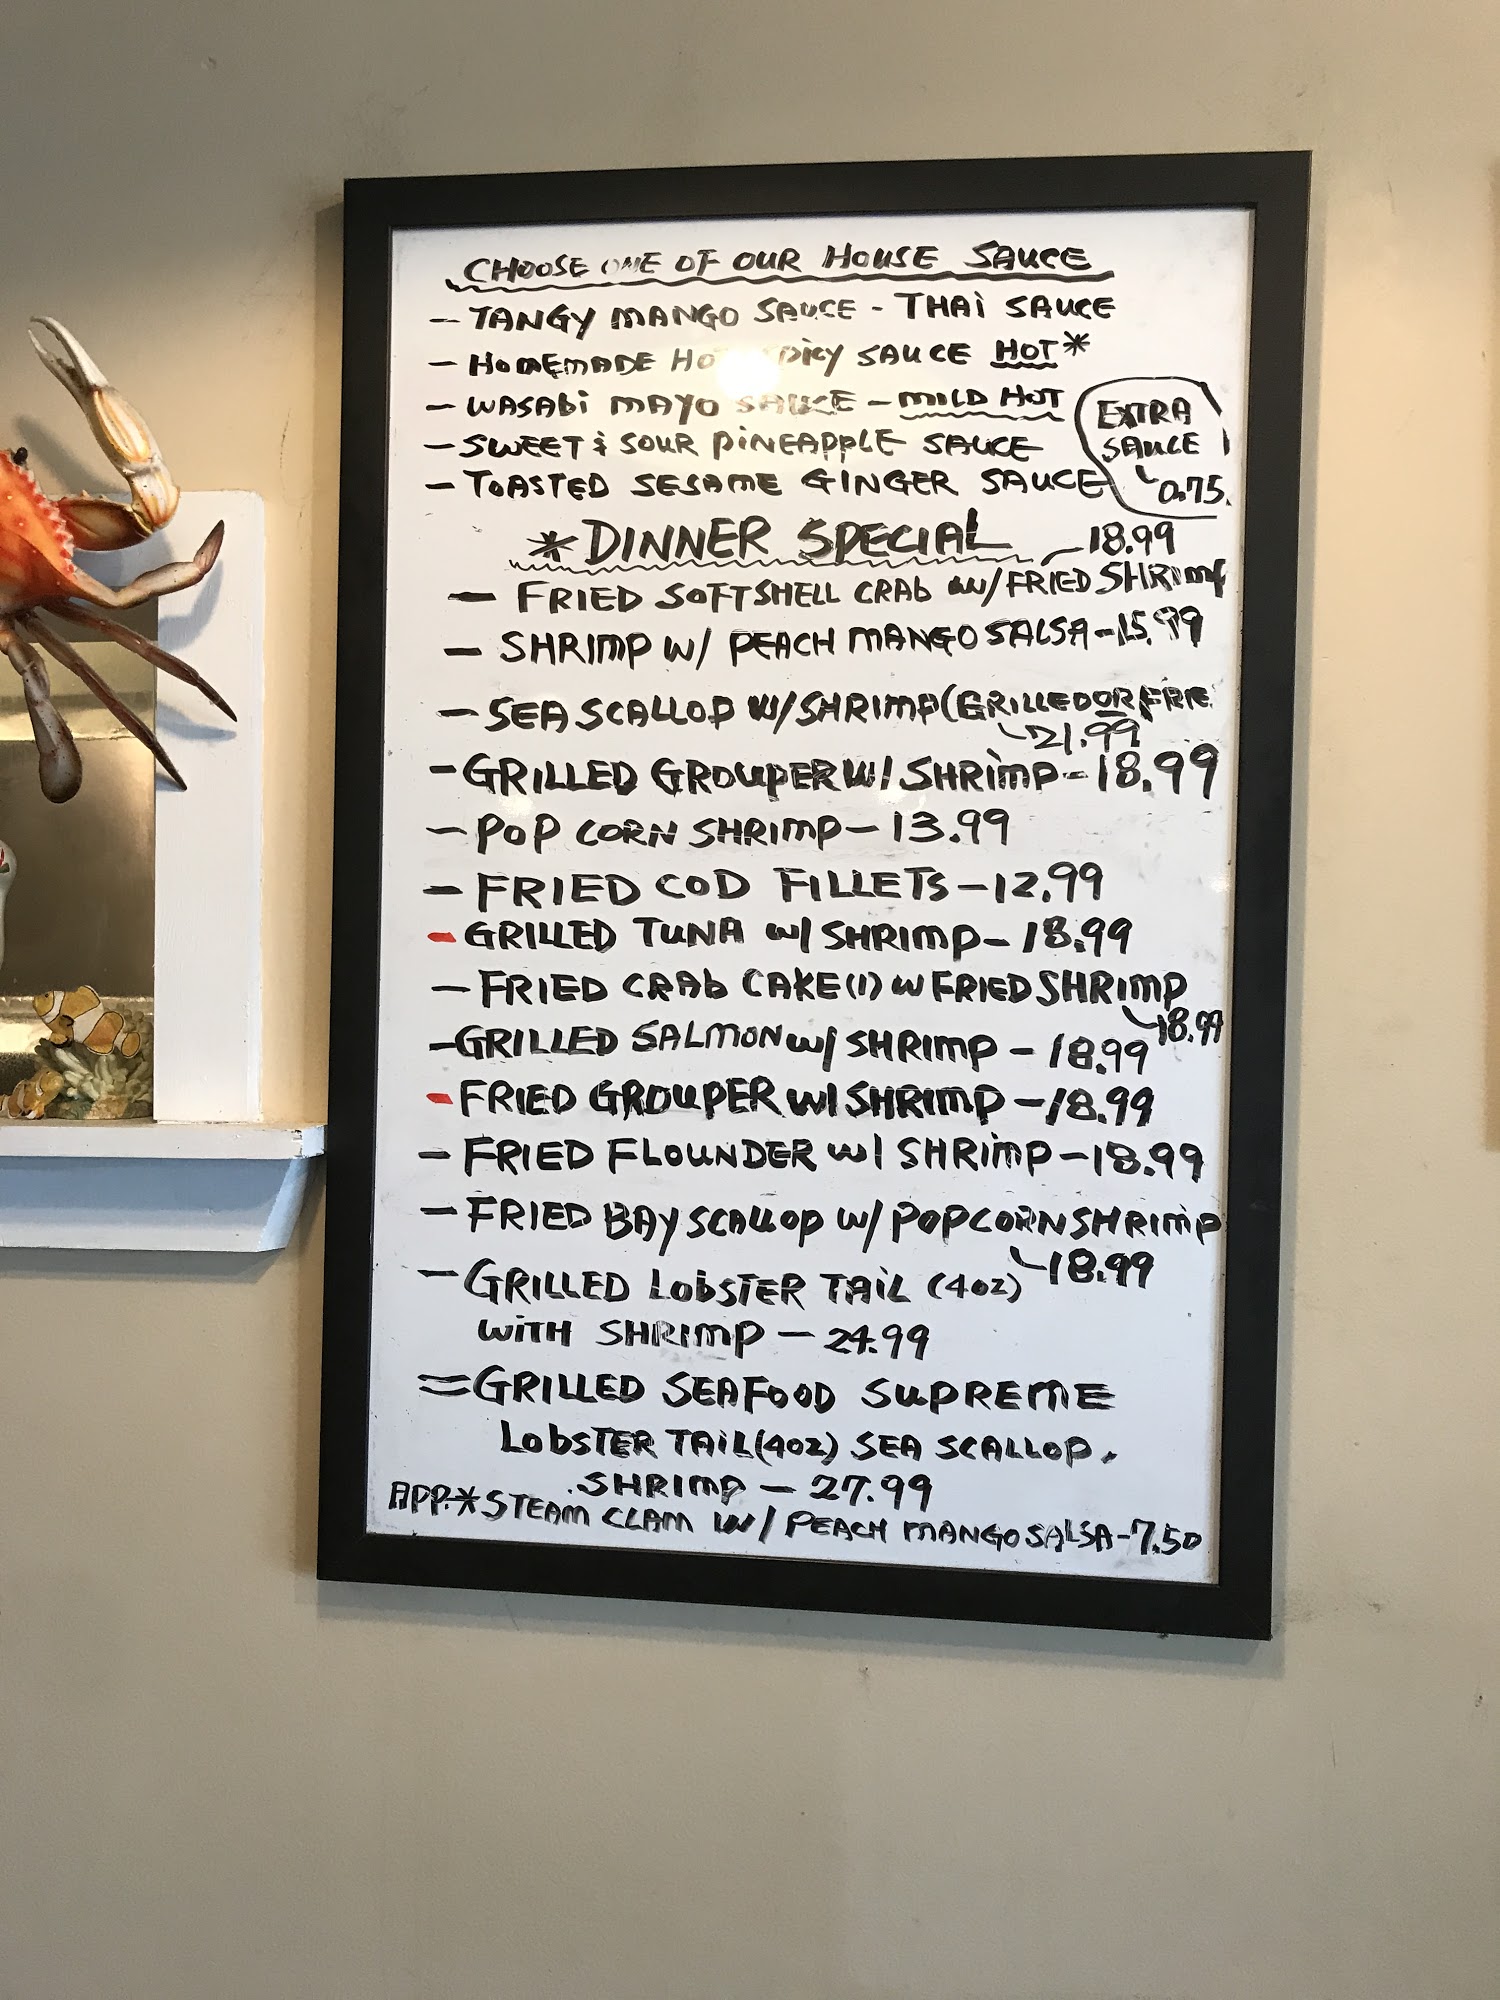 CHOOSE ONE OF OUR HOUSE SAUCE
- TANGY MANGO SAUCE - THAI SAUCE
- HOMEMADE HOT SPICY SAUCE HOT*
- WASABI MAYO SAUCE - MILD HOT
- SWEET & SOUR PINEAPPLE SAUCE
- TOASTED SESAME GINGER SAUCE
EXTRA
SAUCE
0.75
*DINNER SPECIAL
18.99
- FRIED SOFTSHELL CRAB W/ FRIED SHRIMP
- SHRIMP W/ PEACH MANGO SALSA - 15.99
- SEA SCALLOP W/ SHRIMP (GRILLED OR FRIE
21.99
- GRILLED GROUPER W/ SHRIMP - 18.99
- POPCORN SHRIMP - 13.99
- FRIED COD FILLETS - 12.99
- GRILLED TUNA W/ SHRIMP - 18.99
- FRIED CRAB CAKE (1) W FRIED SHRIMP
18.99
- GRILLED SALMON W/ SHRIMP - 18.99
- FRIED GROUPER W/ SHRIMP - 18.99
- FRIED FLOUNDER W/ SHRIMP - 18.99
- FRIED BAY SCALLOP W/ POPCORN SHRIMP
18.99
- GRILLED LOBSTER TAIL (4OZ)
WITH SHRIMP - 24.99
= GRILLED SEAFOOD SUPREME
LOBSTER TAIL (4OZ) SEA SCALLOP,
SHRIMP - 27.99
APP.* STEAM CLAM W/ PEACH MANGO SALSA - 7.50